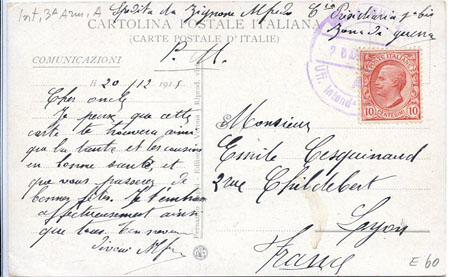 Spedita da Zignone Alfredo
Zona di guerra
CARTOLINA POSTALE ITALIANA
(CARTE POSTALE D'ITALIE)
P. M.
COMUNICAZIONI
20/12 1915
Cher oncle
Je pense que cette
carte te trouvera ainsi
que la tante et les cousins
en bonne santé, et
que vous passerez de
bonnes fêtes. Je t'embrasse
affectueusement ainsi
que tous.
POSTE ITALIANE
10 CENTESIMI 10
Monsieur
Emile Cesquinaud
2 rue Childebert
Lyon
France
E 60